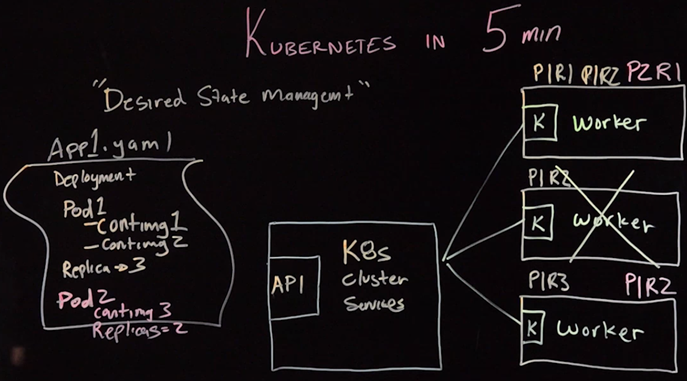 KUBERNETES IN 5 min
"Desired State Managemt"
App1.yaml
Deployment
Pod 1
- Contimg 1
- Contimg 2
Replica → 3
Pod 2
Contimg 3
Replicas = 2
API
K8s
Cluster
Services
P1R1 P1R2 P2R1
K Worker
P1R2
K Worker
P1R3 P1R2
K Worker